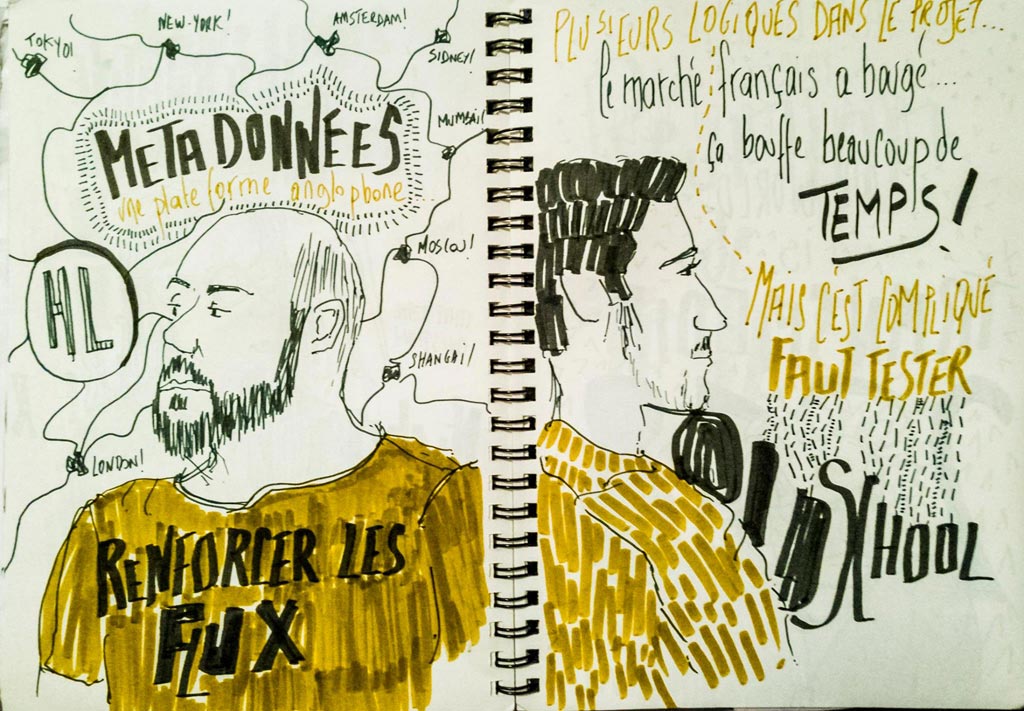 TOKYO!
NEW-YORK!
AMSTERDAM!
SIDNEY!
METADONNEES
une plateforme anglophone...
MUMBAI!
MOSCOU!
SHANGAI!
LONDON!
RENFORCER LES
FLUX
PLUSIEURS LOGIQUES DANS LE PROJET...
le marché français a bougé...
ça bouffe beaucoup de
TEMPS!
MAIS C'EST COMPLIQUÉ
FAUT TESTER
SCHOOL